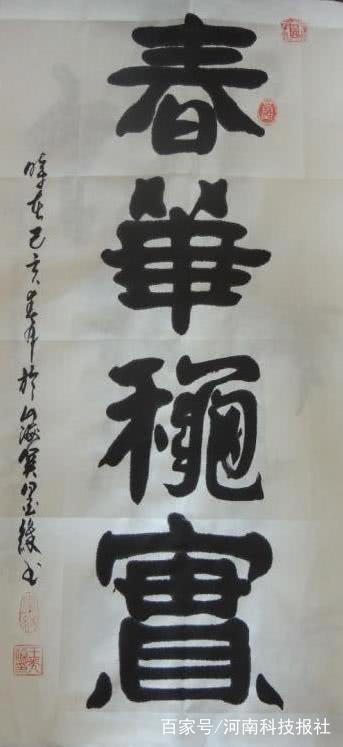 春華龝實
時在己亥春於山海書
百家号/河南科技报社